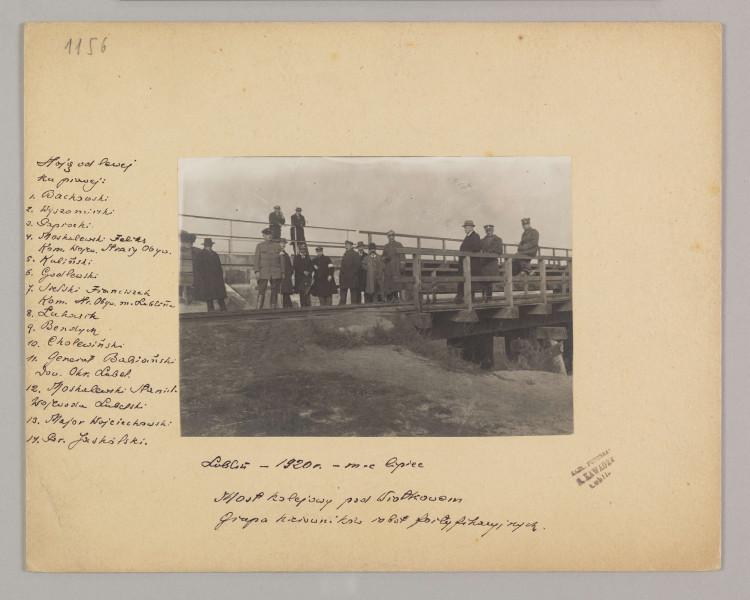 1156
Stoją od lewej
ku prawej:
1. Baczewski
2. Wyszomirski
3. Sapiecki
4. Moskalewski Feliks
Kom. Wojew. Straży Obyw.
5. Kuliński
6. Godlewski
7. Franciszek
Kom. St. Obyw. m. Lublina
8. Lukasik
9. Bendych
10. Cholewiński
11. Generał Babiański
Dow. Okr. Lubel.
12. Moskalewski Stanisł.
Wojewoda Lubelski
13. Major Wojciechowski
14. Jaskólski.
Lublin – 1920 r. – m-c lipiec
Most kolejowy pod
Grupa kierowników robót fortyfikacyjnych.